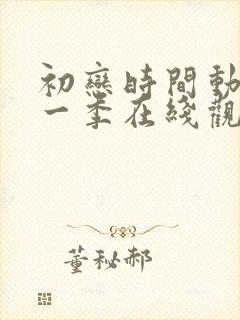 初戀時間動
一季在綫觀
董秘郝